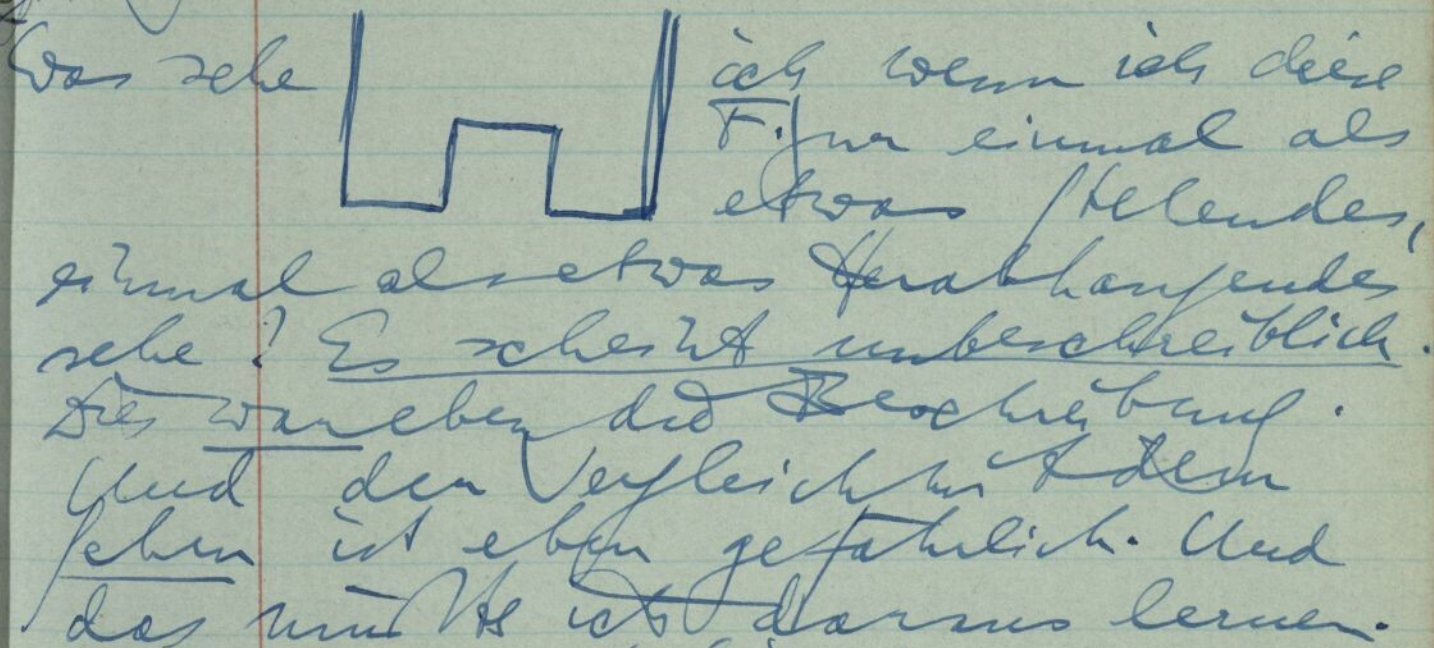 Was sehe ich wenn ich diese
Figur einmal als
etwas stehendes,
einmal als etwas Herabhangendes
sehe? Es scheint unbeschreiblich.
Dies war eben die Beschreibung.
Und der Vergleich mit dem
sehen ist eben gefährlich. Und
das müßte ich daraus lernen.